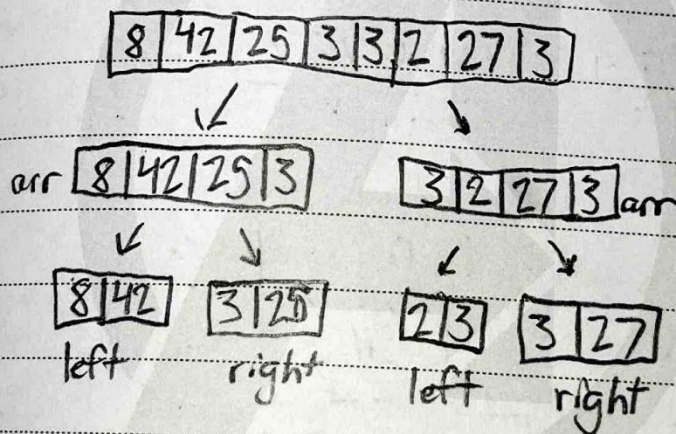 8 42 25 3 3 2 27 3
arr 8 42 25 3 3 2 27 3 arr
8 42 3 25 2 3 3 27
left right left right